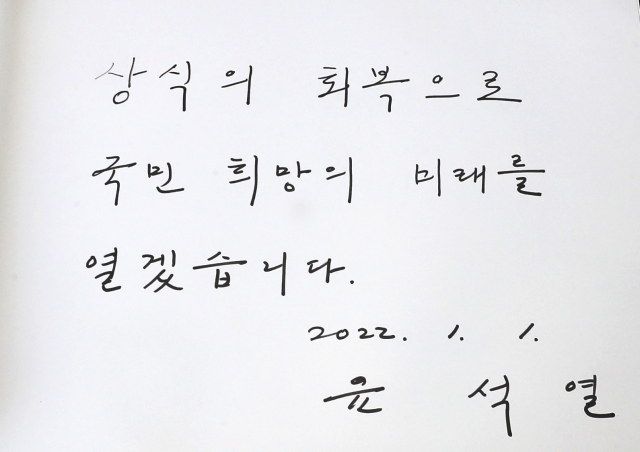 상식의 회복으로
국민 희망의 미래를
열겠습니다.
2022. 1. 1.
윤 석 열